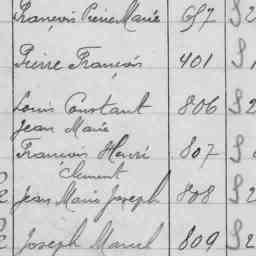 François Pierre Marie 657 S 2
Pierre François 401 S 1
Louis Constant 806 S 2
Jean Marie
François Henri 807 S
Clement
Jean Marie Joseph 808 S 2
Joseph Marcel 809 S 2